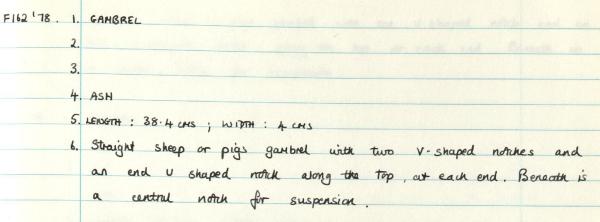 F162 '78. 1. GAMBREL
2.
3.
4. ASH
5. LENGTH : 38.4 CMS ; WIDTH : 4 CMS
6. Straight sheep or pigs gambrel with two V-shaped notches and
an end U shaped notch along the top, at each end. Beneath is
a central notch for suspension.